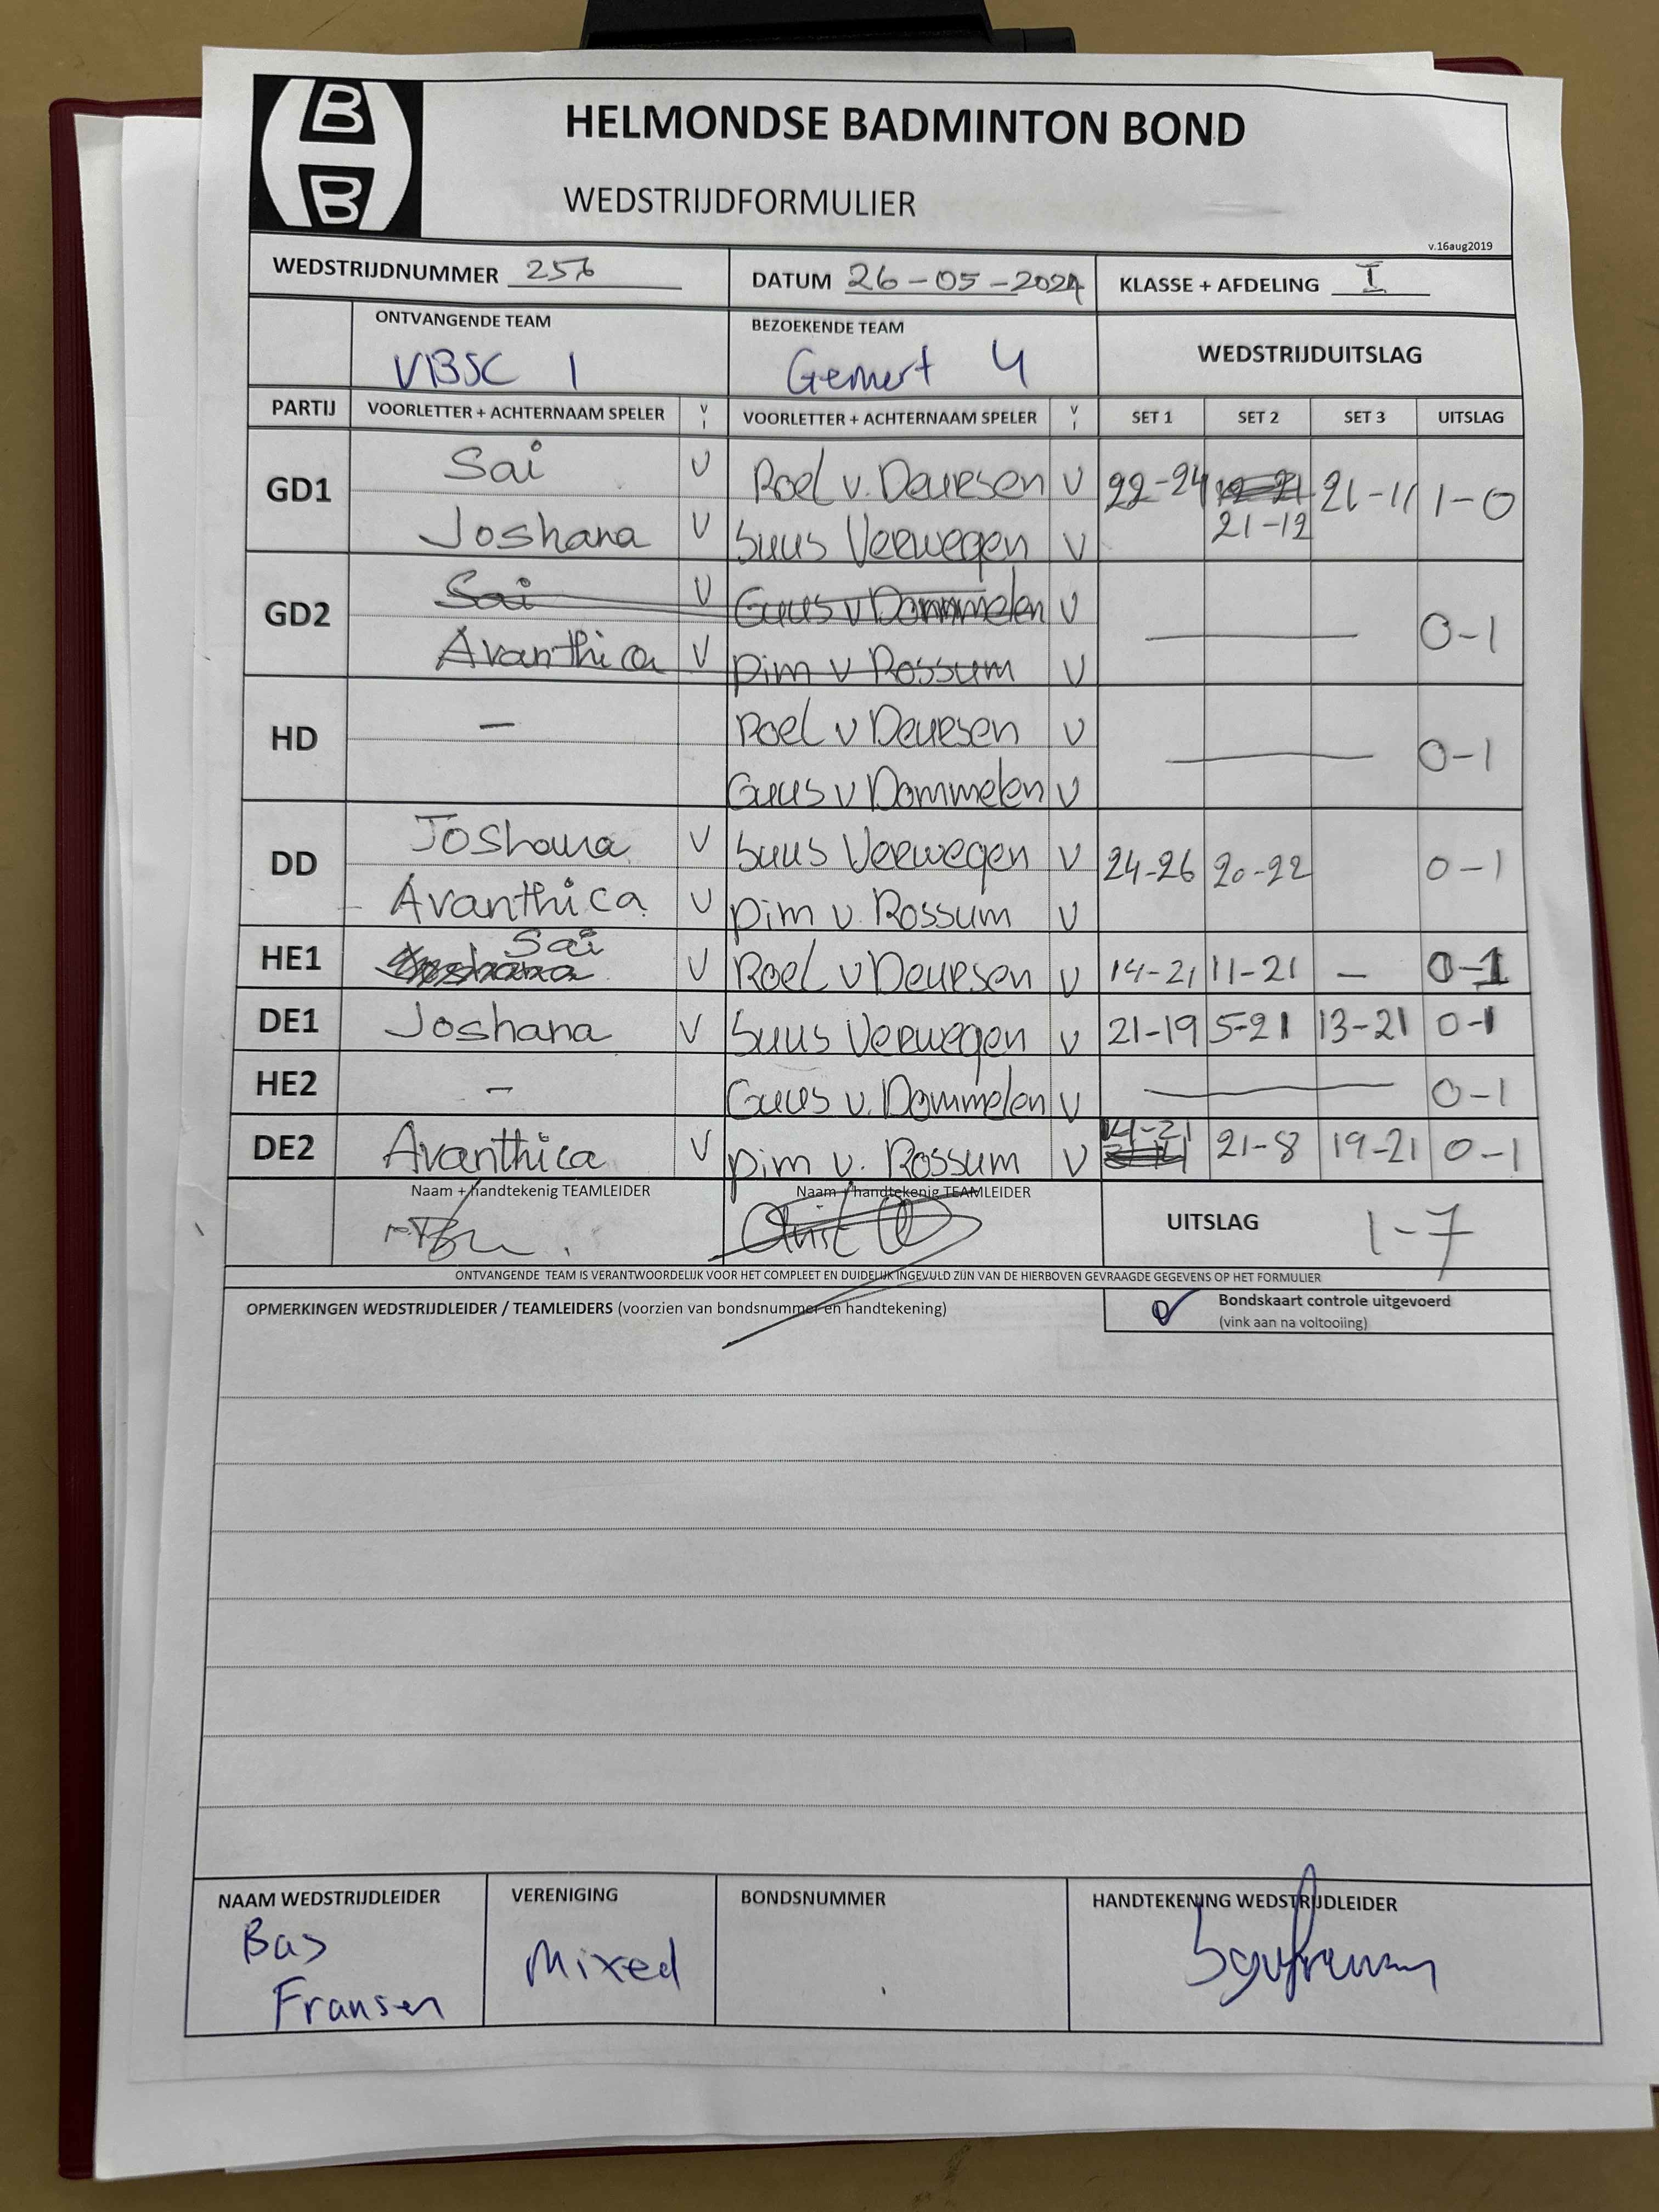 B
B
HELMONDSE BADMINTON BOND
WEDSTRIJDFORMULIER
v.16aug2019
WEDSTRIJDNUMMER 256 DATUM 26-05-2024 KLASSE + AFDELING I
ONTVANGENDE TEAM BEZOEKENDE TEAM WEDSTRIJDUITSLAG
VBSC 1 Gemert 4
PARTIJ VOORLETTER + ACHTERNAAM SPELER V VOORLETTER + ACHTERNAAM SPELER V SET 1 SET 2 SET 3 UITSLAG
GD1 Sai V Roel v. Deursen V 22-24 21-12 21-11 1-0
Joshana V Suus Verwegen V
GD2 Sai V Guus v Dommelen V 0-1
Avanthica V Pim v Rossum V
HD - Roel v Deursen V 0-1
Guus v Dommelen V
DD Joshana V Suus Verwegen V 24-26 20-22 0-1
Avanthica V Pim v. Rossum V
HE1 Sai V Roel v Deursen V 14-21 11-21 - 0-1
DE1 Joshana V Suus Verwegen V 21-19 5-21 13-21 0-1
HE2 - Guus v. Dommelen V 0-1
DE2 Avanthica V Pim v. Rossum V 14-21 21-8 19-21 0-1
Naam + handtekenig TEAMLEIDER Naam + handtekenig TEAMLEIDER UITSLAG 1-7
ONTVANGENDE TEAM IS VERANTWOORDELIJK VOOR HET COMPLEET EN DUIDELIJK INGEVULD ZIJN VAN DE HIERBOVEN GEVRAAGDE GEGEVENS OP HET FORMULIER
OPMERKINGEN WEDSTRIJDLEIDER / TEAMLEIDERS (voorzien van bondsnummer en handtekening) Bondskaart controle uitgevoerd
(vink aan na voltooiing)
NAAM WEDSTRIJDLEIDER VERENIGING BONDSNUMMER HANDTEKENING WEDSTRIJDLEIDER
Bas Mixed
Fransen